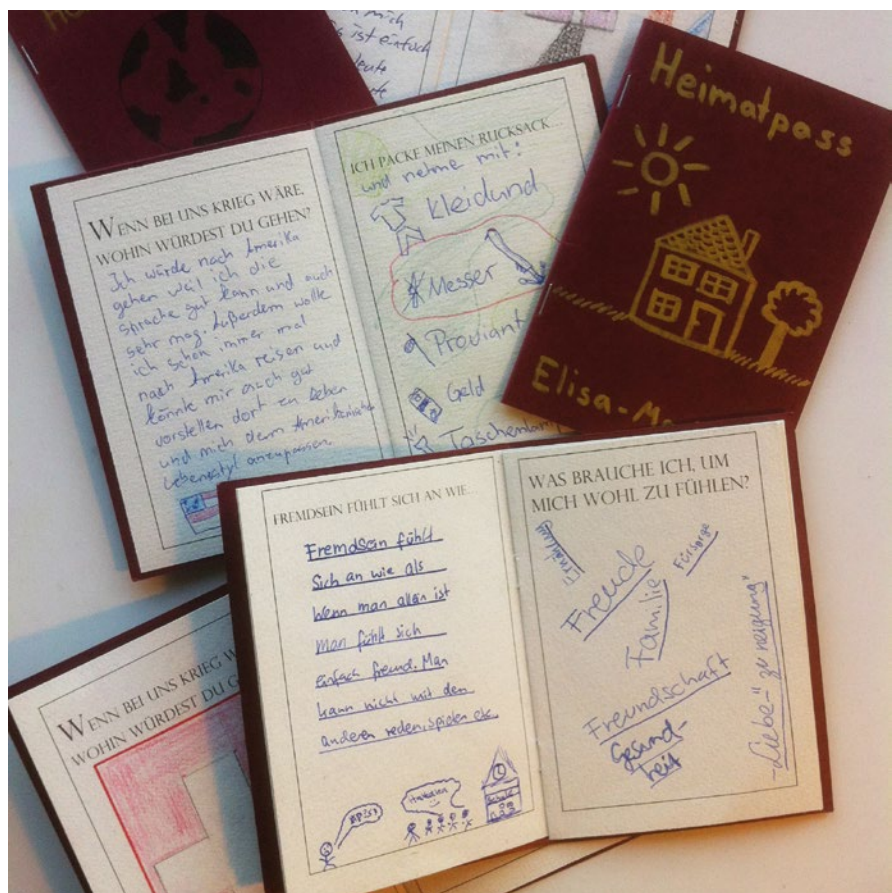 ist einfach
WENN BEI UNS KRIEG WÄRE,
WOHIN WÜRDEST DU GEHEN?
Ich würde nach Amerika
gehen weil ich die
sprache gut kann und auch
sehr mag. Außerdem wollte
ich schon immer mal
nach Amerika reisen und
könnte mir auch gut
vorstellen dort zu leben
und mich dem Amerikanischen
Lebenstyl anzupassen.
ICH PACKE MEINEN RUCKSACK...
und nehme mit:
Kleidund
Messer
Proviant
Geld
Heimatpass
FREMDSEIN FÜHLT SICH AN WIE...
Fremdsein fühlt
Sich an wie als
Wenn man allein ist
Man fühlt sich
einfach fremd. Man
kann nicht mit den
anderen reden, spielen etc.
Hahaha
Schule
WAS BRAUCHE ICH, UM
MICH WOHL ZU FÜHLEN?
Freude
Fürsorge
Familie
Freundschaft
Gesund-
heit
-Liebe-"zuneigung"
WENN BEI UNS KRIEG
WOHIN WÜRDEST DU